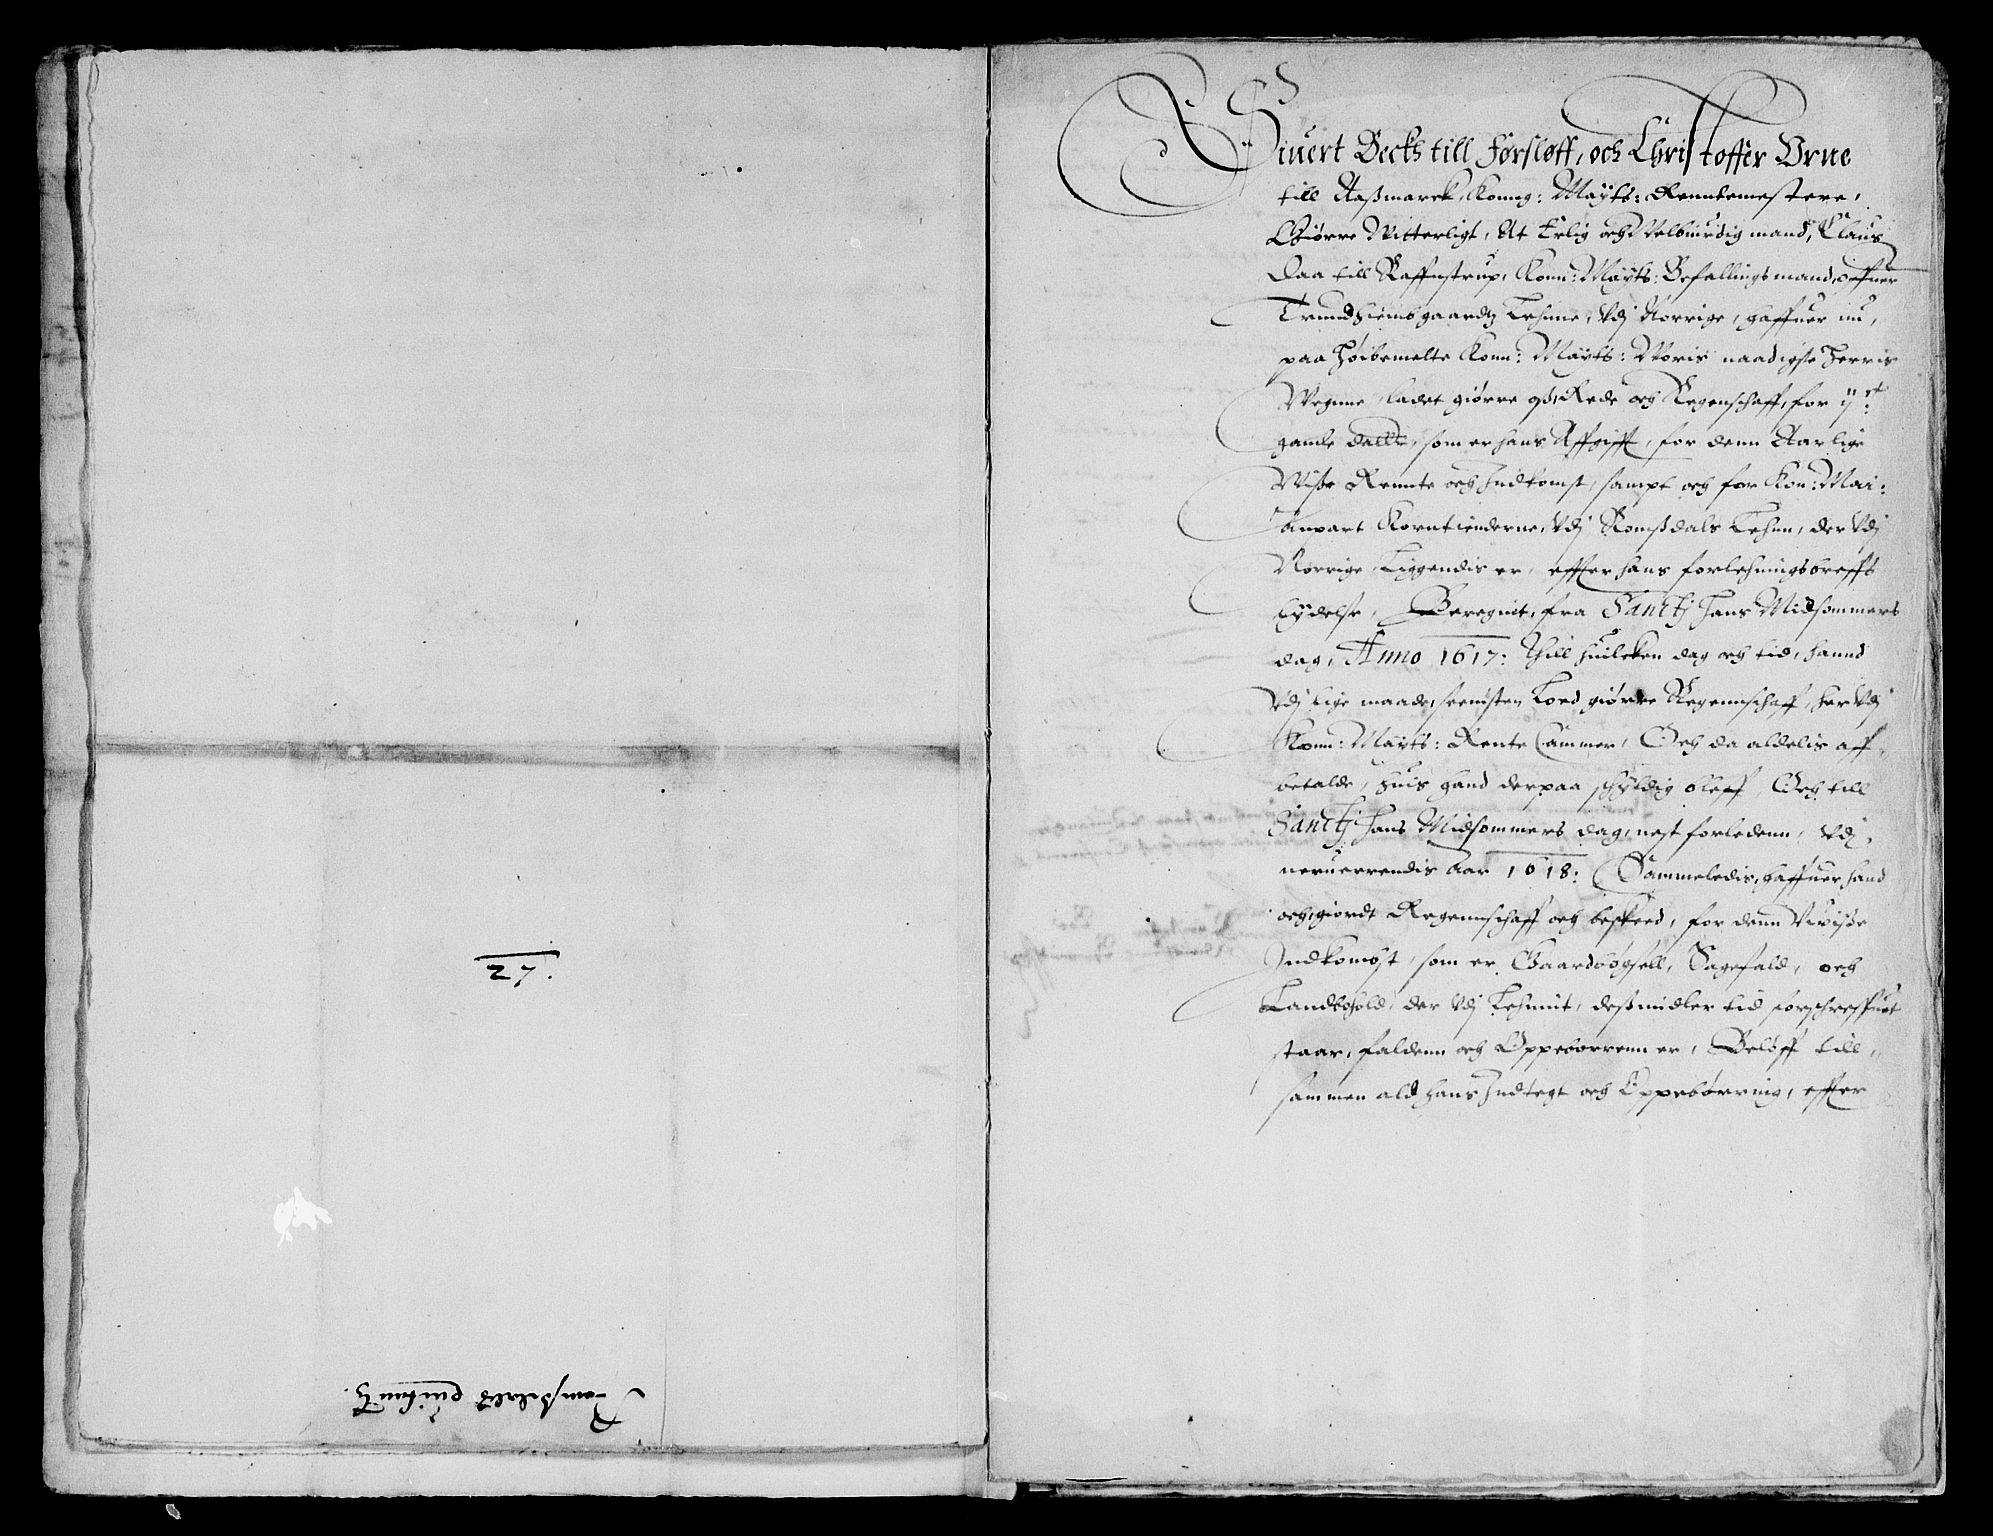 27.
Romsdals quitantz.
Siuert Beck till Førsløff, och Christoffer Vrne
till Aaßmarck, Konng: Maÿts: Renntemestere,
Giørre Witterligt, At Erlig och Velbiurdig mand, Claus
Daa till Raffnstrup, Konn: Maÿts: Befallingsmand, offuer
Trundhiembsgaardtz Lehnne, Vdj Norrige, haffuer nu,
paa Høibemelte Konn: Maÿts: Woris naadigste Herris
Wegnne, ladet giørre Rede och Regenschaff, for ijct:
gamle daller, som er hans Affgifft, for denn Aarlige
Wiße Rennte och Indkomst, sampt och for Kon: Mai:
anpart Korntienderne, Vdj Romsdals Lehnn, der Vdj
Norrige, Liggendis er, effter hans forlehningsbreffs
Lydelse, Beregnit, fra Sanctj Hans Midsommers
dag, Anno 1617: Thill huilcken dag och tid, hannd
Vdj lige maade, seenisten Loed giørre Regennschaff, her Vdj
Konn: Maÿts: Rente Cammer, Och da aldelis aff,
betalde, huis hand derpaa schyldig bleff, Och till
Sanctj Hans Midsommers dag, nest forledenn, Vdj,
neruerrendis Aar 1618: Sammeledis, haffuer hand
och, giordt Regennschaff och beskeed, for denn Vwiße
Indkombst, som er, Gaardbøgsell, Sagefald, och
Landbohold, der Vdj Lehnnit, deßmidler tid forschreffuet
staar, faldenn och Oppebørrenn er, Beløff till,,
sammen ald hans Indtegt och Oppebørring, effter